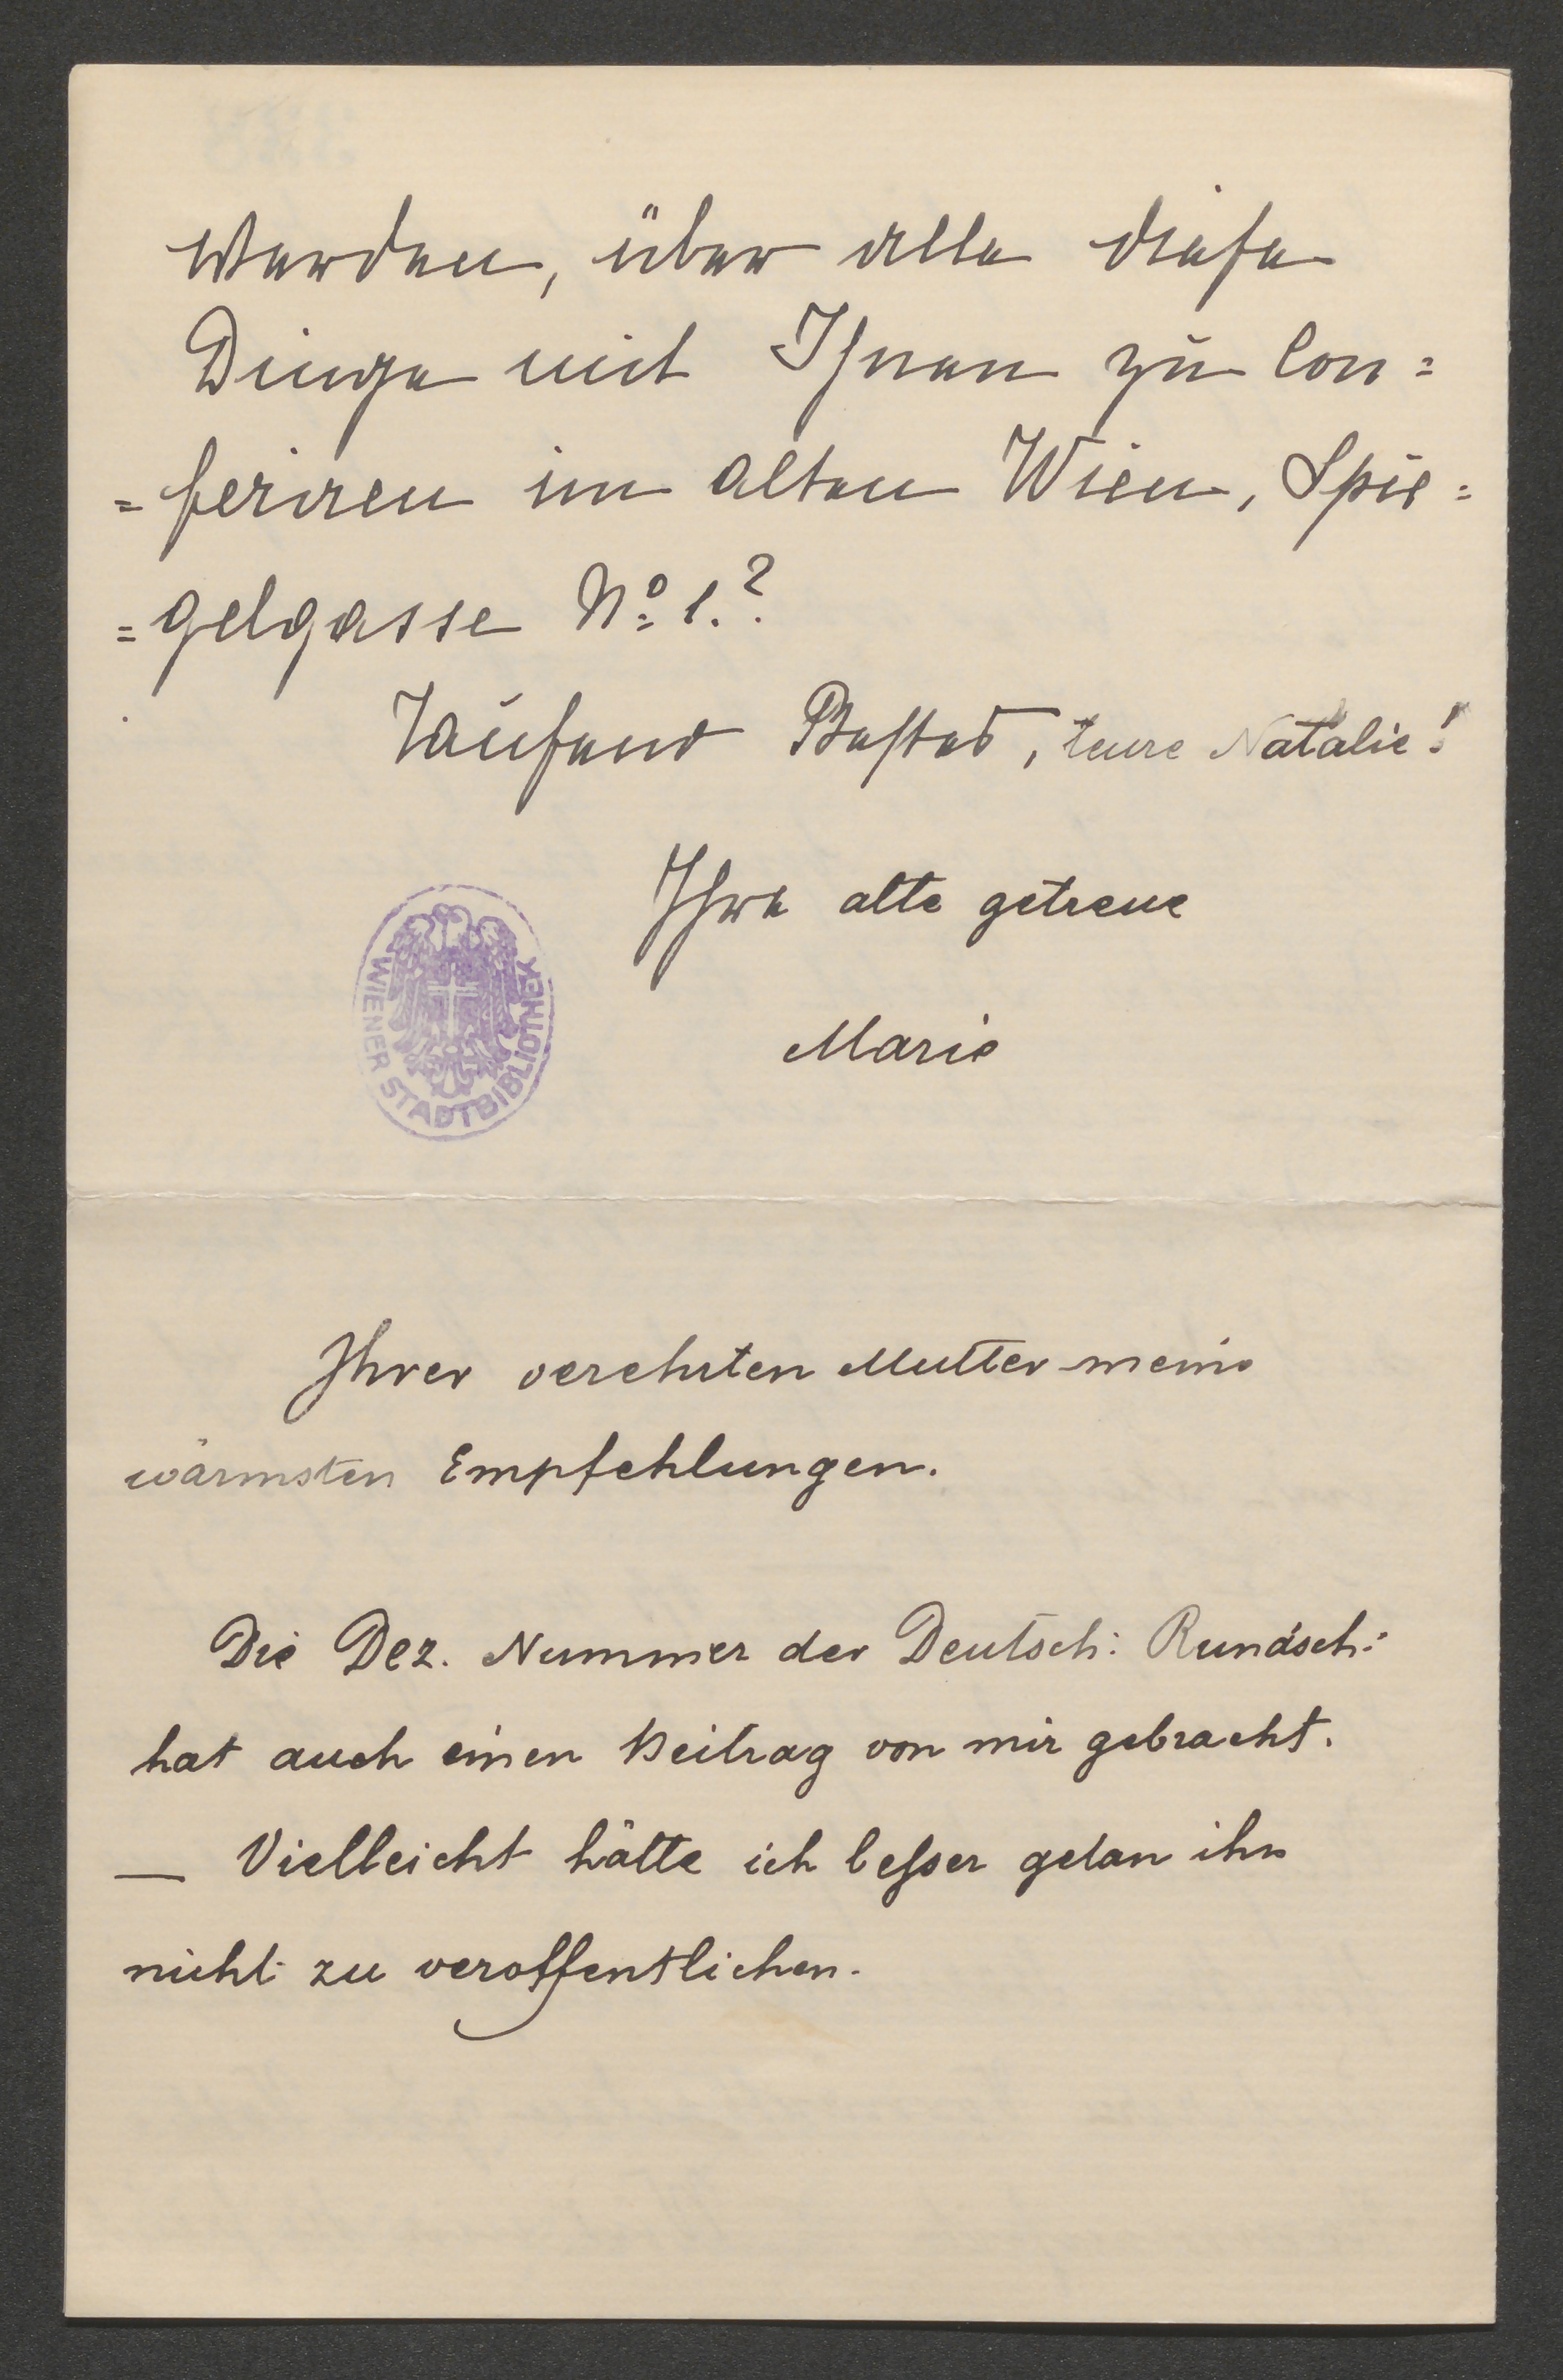 werden, über alle diese
Dinge mit Ihnen zu con=
=feriren im alten Wien, Spie=
=gelgasse No: 1.?
Tausend Bestes, teure Natalie!
Ihre alte getreue
Marie
WIENER STADTBIBLIOTHEK
Ihrer verehrten Mutter meine
wärmsten Empfehlungen.
Die Dez. Nummer der Deutsch: Rundsch:
hat auch einen Beitrag von mir gebracht.
— Vielleicht hätte ich besser getan ihn
nicht zu veroffentlichen.